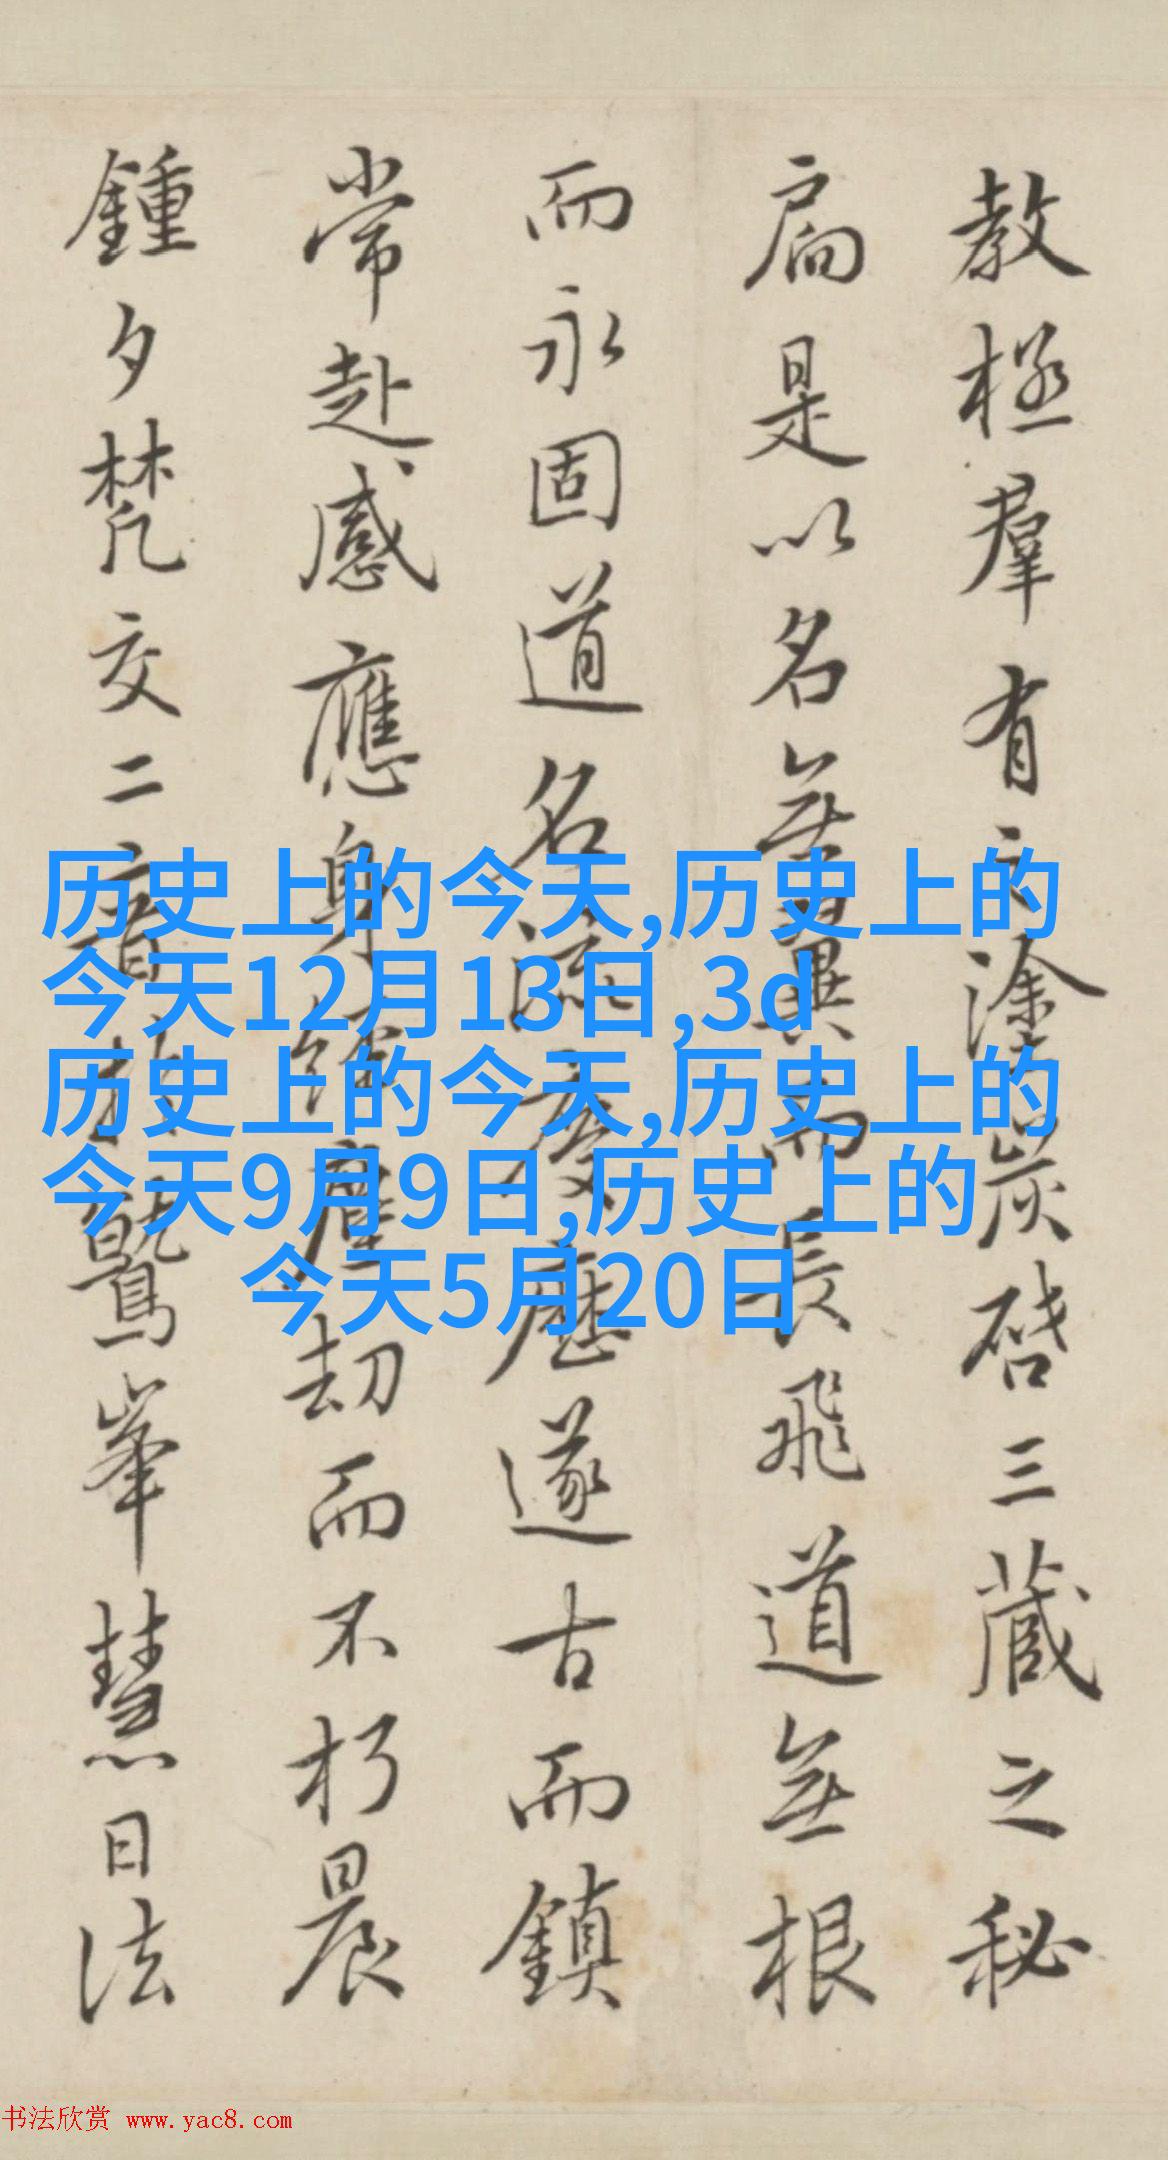 教極羣有之塗炭啓三藏之秘
扃是以名無翼而長飛道無根
而永固道名流慶歷遂古而鎮
常赴感應身經塵劫而不朽晨
鍾夕梵交二音於鷲峯慧日法
历史上的今天,历史上的
今天12月13日,3d
历史上的今天,历史上的
今天9月9日,历史上的
今天5月20日
书法欣赏 www.yac8.com